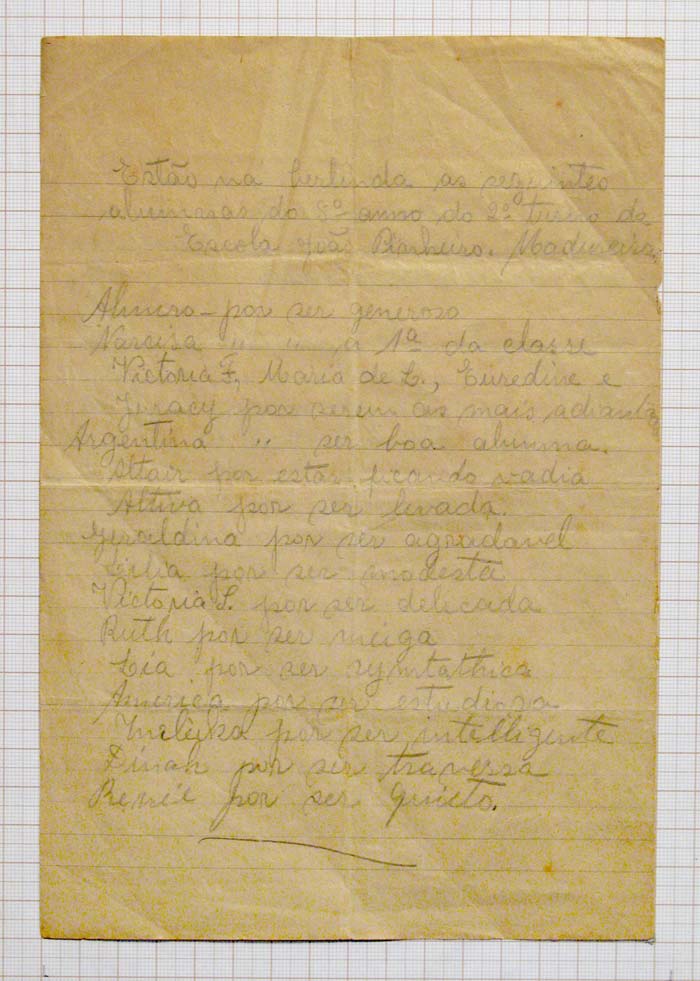 Estão na berlinda as seguintes
alumnas do 8º anno do 2º turno da
Escola João Pinheiro. Madureira.
por ser generoso
Narcisa " " a 1ª da classe
Victoria F, Maria de L., Euredine e
Juracy por serem as mais adianta
Argentina " ser boa alumna.
Altair por estar ficando vadia
Altiva por ser levada.
Geraldina por ser agradavel
Lilia por ser modesta
Victoria S. por ser delicada
Ruth por ser meiga
Lia por ser symtathica
America por ser estudiosa
por ser intelligente
Dinah por ser travessa
por ser quieto.